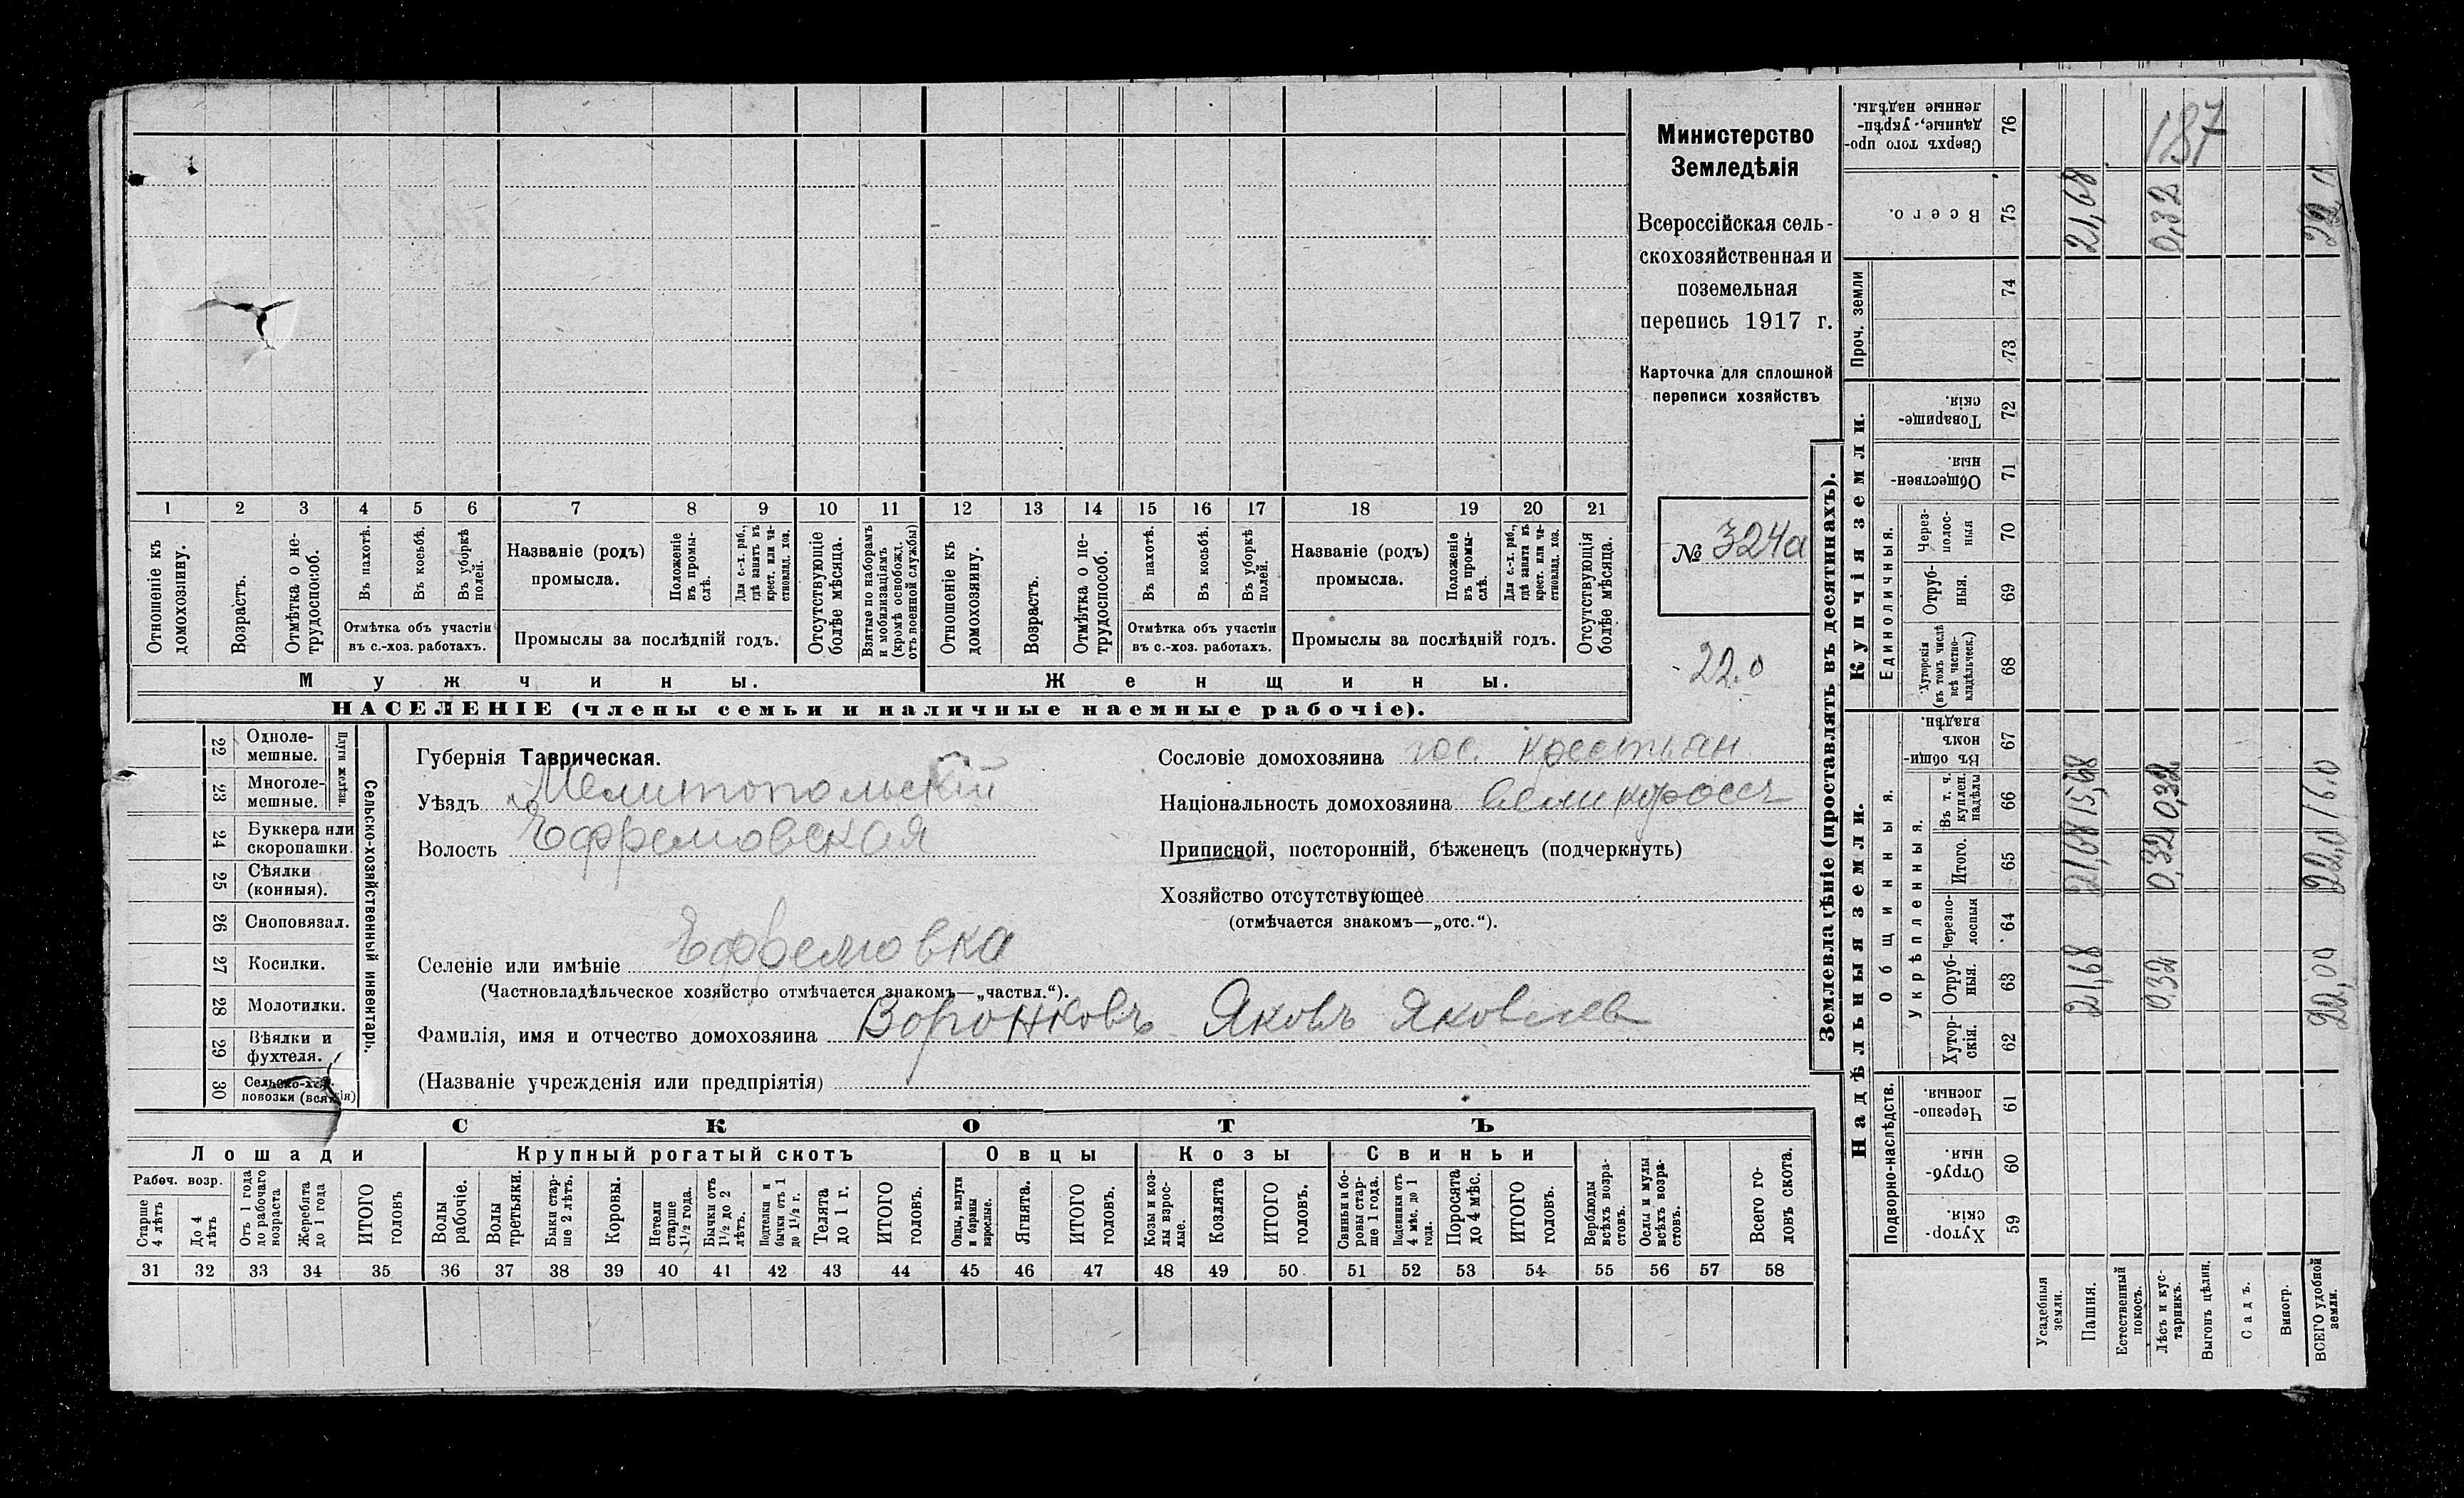 Министерство
Земледѣлія
Всероссійская сель-
скохозяйственная и
поземельная
перепись 1917 г.
Карточка для сплошной
переписи хозяйствъ
№ 324а
22.0
1 2 3 4 5 6 7 8 9 10 11 12 13 14 15 16 17 18 19 20 21
Отношеніе къ домохозяину.
Возрастъ.
Отмѣтка о не-трудоспособ.
Въ пахотѣ.
Въ косьбѣ.
Въ уборкѣ полей.
Отмѣтка объ участіи
въ с.-хоз. работахъ.
Названіе (родъ)
промысла.
Положеніе въ промы-слѣ.
Для с.-х. раб., гдѣ занятъ въ крест. или ча-стновлад. хоз.
Промыслы за послѣдній годъ.
Отсутствующіе болѣе мѣсяца.
Взятые по наборамъ и мобилизаціямъ (кромѣ освобожд. отъ военной службы)
Отношеніе къ домохозяину.
Возрастъ.
Отмѣтка о не-трудоспособ.
Въ пахотѣ.
Въ косьбѣ.
Въ уборкѣ полей.
Отмѣтка объ участіи
въ с.-хоз. работахъ.
Названіе (родъ)
промысла.
Положеніе въ промы-слѣ.
Для с.-х. раб., гдѣ занята въ крест. или ча-стновлад. хоз.
Промыслы за послѣдній годъ.
Отсутствующія болѣе мѣсяца.
Мужчины. Женщины.
НАСЕЛЕНІЕ (члены семьи и наличные наемные рабочіе).
22 Одноле-мешные.
23 Многоле-мешные.
Плуги желѣзн.
24 Буккера или скоропашки.
25 Сѣялки (конныя).
26 Сноповязал.
27 Косилки.
28 Молотилки.
29 Вѣялки и фухтеля.
30 Сельско-хоз. повозки (всякія)
Сельско-хозяйственный инвентарь.
Губернія Таврическая.
Уѣздъ Мелитопольскій
Волость Ефремовская
Сословіе домохозяина гос. крестьян
Національность домохозяина великороссъ
Приписной, посторонній, бѣженецъ (подчеркнуть)
Хозяйство отсутствующее
(отмѣчается знакомъ—„отс.“).
Селеніе или имѣніе Ефремовка
(Частновладѣльческое хозяйство отмѣчается знакомъ—„частвл.“).
Фамилія, имя и отчество домохозяина Воронковъ Яковъ Яковлев
(Названіе учрежденія или предпріятія)
СКОТЪ
Лошади Крупный рогатый скотъ Овцы Козы Свиньи
Рабоч. возр.
Старше 4 лѣтъ
До 4 лѣтъ
Отъ 1 года до рабочаго возраста
Жеребята до 1 года
ИТОГО головъ
Волы рабочіе.
Волы третьяки.
Быки стар-ше 2 лѣтъ.
Коровы.
Нетели старше 1½ года.
Бычки отъ 1½ до 2 лѣтъ.
Подтелки и бычки отъ 1 до 1½ г.
Телята до 1 г.
ИТОГО головъ.
Овцы, валухи и бараны взрослые.
Ягнята.
ИТОГО головъ.
Козы и коз-лы взрос-лые.
Козлята
ИТОГО головъ.
Свиньи и бо-ровы стар-ше 1 года.
Подсвинки отъ 4 мѣс. до 1 года.
Поросята до 4 мѣс.
ИТОГО головъ.
Верблюды всѣхъ возра-стовъ.
Ослы и мулы всѣхъ возра-стовъ.
Всего го-ловъ скота.
31 32 33 34 35 36 37 38 39 40 41 42 43 44 45 46 47 48 49 50 51 52 53 54 55 56 57 58
Землевладѣніе (проставлять въ десятинахъ).
Надѣльныя земли.
Подворно-наслѣдств.
59 Хутор-скія.
60 Отруб-ныя.
61 Черезпо-лосныя.
Общинныя.
Укрѣпленныя.
62 Хутор-скія.
63 Отруб-ныя.
64 Черезпо-лосныя
65 Итого.
66 Въ т. ч. куплен. надѣлы
67 Въ общи-номъ владѣн.
Купчія земли.
Единоличныя.
68 Хуторскія (въ томъ числѣ всѣ частно-владѣльческ.)
69 Отруб-ныя.
70 Через-полос-ныя
71 Обществен-ныя.
72 Товарище-скія.
Проч. земли
73
74
75 Всего.
76 Сверхъ того про-данные, укрѣп-ленные надѣлы.
Усадебныя земли.
Пашня.
21,68 21,68 15,68 21,68
Естественный покосъ.
Лѣсъ и кус-тарникъ.
0,32 0,32 0,32 0,32
187
Выгонъ цѣлин.
Садъ.
Виногр.
ВСЕГО удобной земли.
22,04 22,0 16.0 22,0